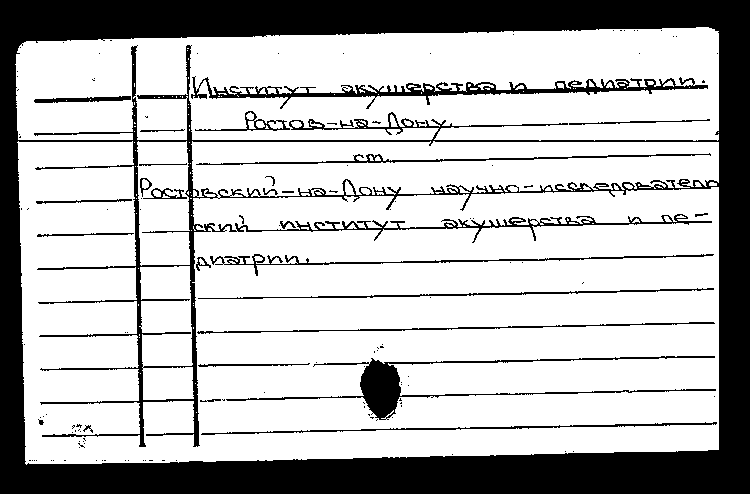 Институт акушерства и педиатрии.
Ростов-на-Дону.
см.
Ростовский-на-Дону научно-исследователь
ский институт акушерства и пе-
диатрии.